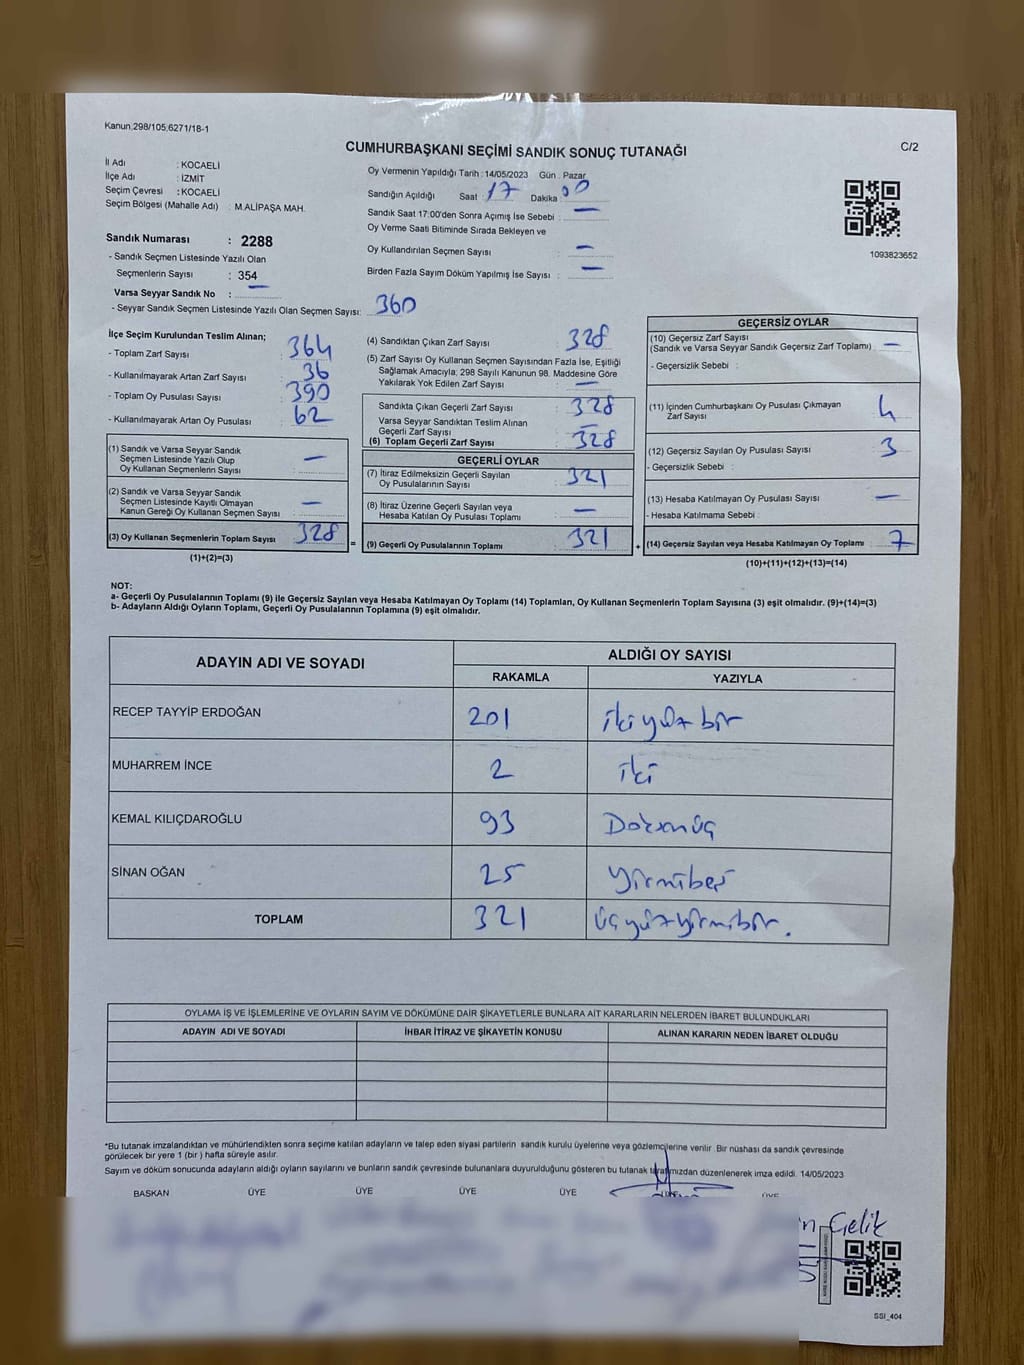 Kanun 298/105,6271/18-1
CUMHURBAŞKANI SEÇİMİ SANDIK SONUÇ TUTANAĞI
C/2
İl Adı : KOCAELİ
İlçe Adı : İZMİT
Seçim Çevresi : KOCAELİ
Seçim Bölgesi (Mahalle Adı) : M.ALİPAŞA MAH.
Sandık Numarası : 2288
- Sandık Seçmen Listesinde Yazılı Olan
Seçmenlerin Sayısı : 354
Varsa Seyyar Sandık No : —
- Seyyar Sandık Seçmen Listesinde Yazılı Olan Seçmen Sayısı: 360
Oy Vermenin Yapıldığı Tarih : 14/05/2023 Gün : Pazar
Sandığın Açıldığı Saat 17 Dakika 00
Sandık Saat 17:00'den Sonra Açımış İse Sebebi : —
Oy Verme Saati Bitiminde Sırada Bekleyen ve
Oy Kullandırılan Seçmen Sayısı : —
Birden Fazla Sayım Döküm Yapılmış İse Sayısı : —
1093823652
İlçe Seçim Kurulundan Teslim Alınan;
- Toplam Zarf Sayısı 364
- Kullanılmayarak Artan Zarf Sayısı 36
- Toplam Oy Pusulası Sayısı 390
- Kullanılmayarak Artan Oy Pusulası 62
(1) Sandık ve Varsa Seyyar Sandık
Seçmen Listesinde Yazılı Olup
Oy Kullanan Seçmenlerin Sayısı : —
(2) Sandık ve Varsa Seyyar Sandık
Seçmen Listesinde Kayıtlı Olmayan
Kanun Gereği Oy Kullanan Seçmen Sayısı : —
(3) Oy Kullanan Seçmenlerin Toplam Sayısı 328
(1)+(2)=(3)
=
(4) Sandıktan Çıkan Zarf Sayısı : 328
(5) Zarf Sayısı Oy Kullanan Seçmen Sayısından Fazla İse, Eşitliği
Sağlamak Amacıyla; 298 Sayılı Kanunun 98. Maddesine Göre
Yakılarak Yok Edilen Zarf Sayısı : —
Sandıkta Çıkan Geçerli Zarf Sayısı : 328
Varsa Seyyar Sandıktan Teslim Alınan
Geçerli Zarf Sayısı : —
(6) Toplam Geçerli Zarf Sayısı : 328
GEÇERLİ OYLAR
(7) İtiraz Edilmeksizin Geçerli Sayılan
Oy Pusulalarının Sayısı : 321
(8) İtiraz Üzerine Geçerli Sayılan veya
Hesaba Katılan Oy Pusulası Toplamı : —
(9) Geçerli Oy Pusulalarının Toplamı : 321
+
GEÇERSİZ OYLAR
(10) Geçersiz Zarf Sayısı
(Sandık ve Varsa Seyyar Sandık Geçersiz Zarf Toplamı) : —
- Geçersizlik Sebebi :
(11) İçinden Cumhurbaşkanı Oy Pusulası Çıkmayan
Zarf Sayısı : 4
(12) Geçersiz Sayılan Oy Pusulası Sayısı : 3
- Geçersizlik Sebebi :
(13) Hesaba Katılmayan Oy Pusulası Sayısı : —
- Hesaba Katılmama Sebebi :
(14) Geçersiz Sayılan veya Hesaba Katılmayan Oy Toplamı : 7
(10)+(11)+(12)+(13)=(14)
NOT:
a- Geçerli Oy Pusulalarının Toplamı (9) ile Geçersiz Sayılan veya Hesaba Katılmayan Oy Toplamı (14) Toplamları, Oy Kullanan Seçmenlerin Toplam Sayısına (3) eşit olmalıdır. (9)+(14)=(3)
b- Adayların Aldığı Oyların Toplamı, Geçerli Oy Pusulalarının Toplamına (9) eşit olmalıdır.
ADAYIN ADI VE SOYADI
ALDIĞI OY SAYISI
RAKAMLA YAZIYLA
RECEP TAYYİP ERDOĞAN 201 iki yüz bir
MUHARREM İNCE 2 iki
KEMAL KILIÇDAROĞLU 93 Doksanüç
SİNAN OĞAN 25 Yirmibeş
TOPLAM 321 üçyüzyirmibir.
OYLAMA İŞ VE İŞLEMLERİNE VE OYLARIN SAYIM VE DÖKÜMÜNE DAİR ŞİKAYETLERLE BUNLARA AİT KARARLARIN NELERDEN İBARET BULUNDUKLARI
ADAYIN ADI VE SOYADI İHBAR İTİRAZ VE ŞİKAYETİN KONUSU ALINAN KARARIN NEDEN İBARET OLDUĞU
*Bu tutanak imzalandıktan ve mühürlendikten sonra seçime katılan adayların ve talep eden siyasi partilerin sandık kurulu üyelerine veya gözlemcilerine verilir. Bir nüshası da sandık çevresinde
görülecek bir yere 1 (bir ) hafta süreyle asılır.
Sayım ve döküm sonucunda adayların aldığı oyların sayılarını ve bunların sandık çevresinde bulunanlara duyurulduğunu gösteren bu tutanak tarafımızdan düzenlenerek imza edildi. 14/05/2023
BAŞKAN ÜYE ÜYE ÜYE ÜYE ÜYE
Çelik
SSI_404